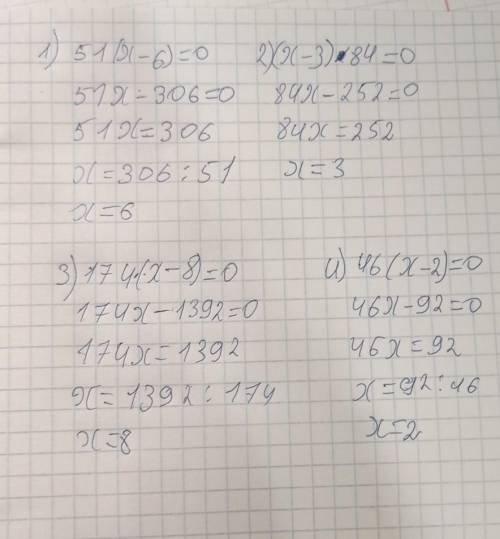 1) 51(x-6)=0
51x-306=0
51x=306
x=306:51
x=6
2)(x-3)·84=0
84x-252=0
84x=252
x=3
3)174(x-8)=0
174x-1392=0
174x=1392
x=1392:174
x=8
4)46(x-2)=0
46x-92=0
46x=92
x=92:46
x=2